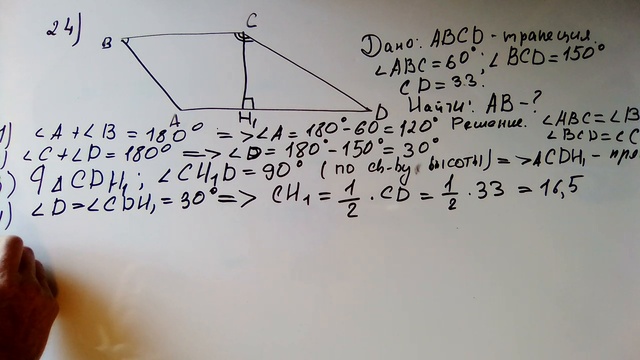 24)
B
C
A
H₁
D
Дано: ABCD - трапеция.
∠ABC = 60°; ∠BCD = 150°
CD = 33.
Найти: AB - ?
Решение.
∠ABC = ∠B
∠BCD = ∠C
1) ∠A + ∠B = 180° => ∠A = 180° - 60 = 120°
) ∠C + ∠D = 180° => ∠D = 180° - 150° = 30°
) ΔCDH₁; ∠CH₁D = 90° (по св-ву высоты) => ΔCDH₁ - пр
) ∠D = ∠CDH₁ = 30° => CH₁ = 1/2 · CD = 1/2 · 33 = 16,5